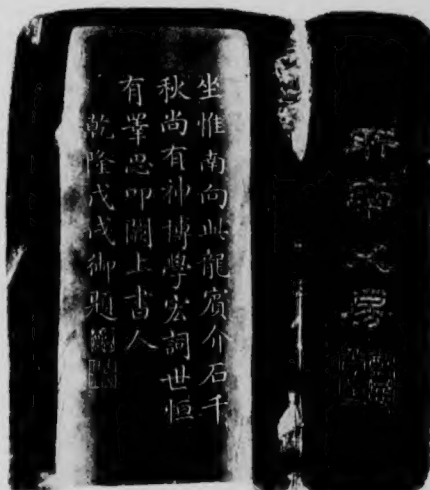 坐惟南向此龍賓介石千
秋尚有神博學宏詞世恒
有睪思叩闕上書人
乾隆戊戌御題
文房